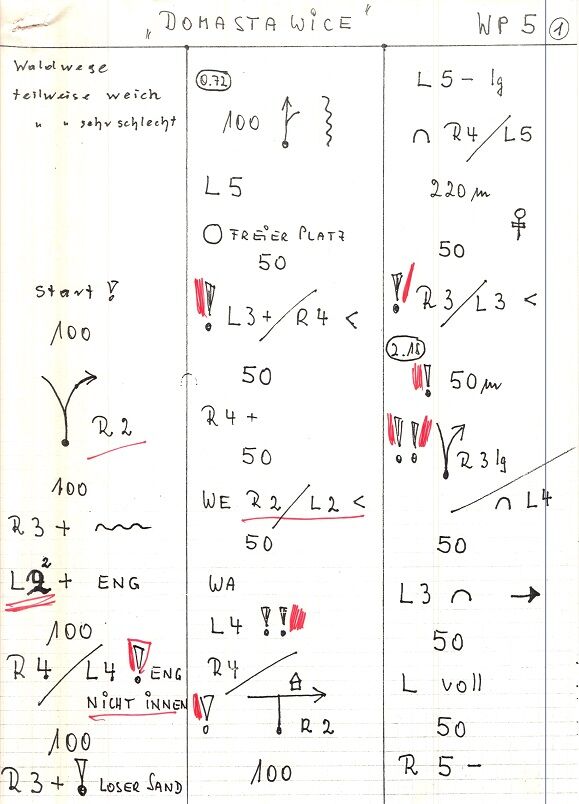 „DOMASTAWICE" WP 5 1
Waldwege
teilweise weich
" " sehr schlecht
Start !
100
R 2
100
R 3 +
L 2 2 + ENG
100
R 4 / L 4 ! ENG
NICHT INNEN
100
R 3 + ! LOSER SAND
0.72
100
L 5
FREIER PLATZ
50
! L 3 + / R 4 <
50
R 4 +
50
WE R 2 / L 2 <
50
WA
L 4 !!
R 4 /
! R 2
100
L 5 - lg
∩ R 4 / L 5
220 m
50
! R 3 / L 3 <
2.18
! 50 m
!! R 3 lg
/ ∩ L 4
50
L 3 ∩ →
50
L voll
50
R 5 -